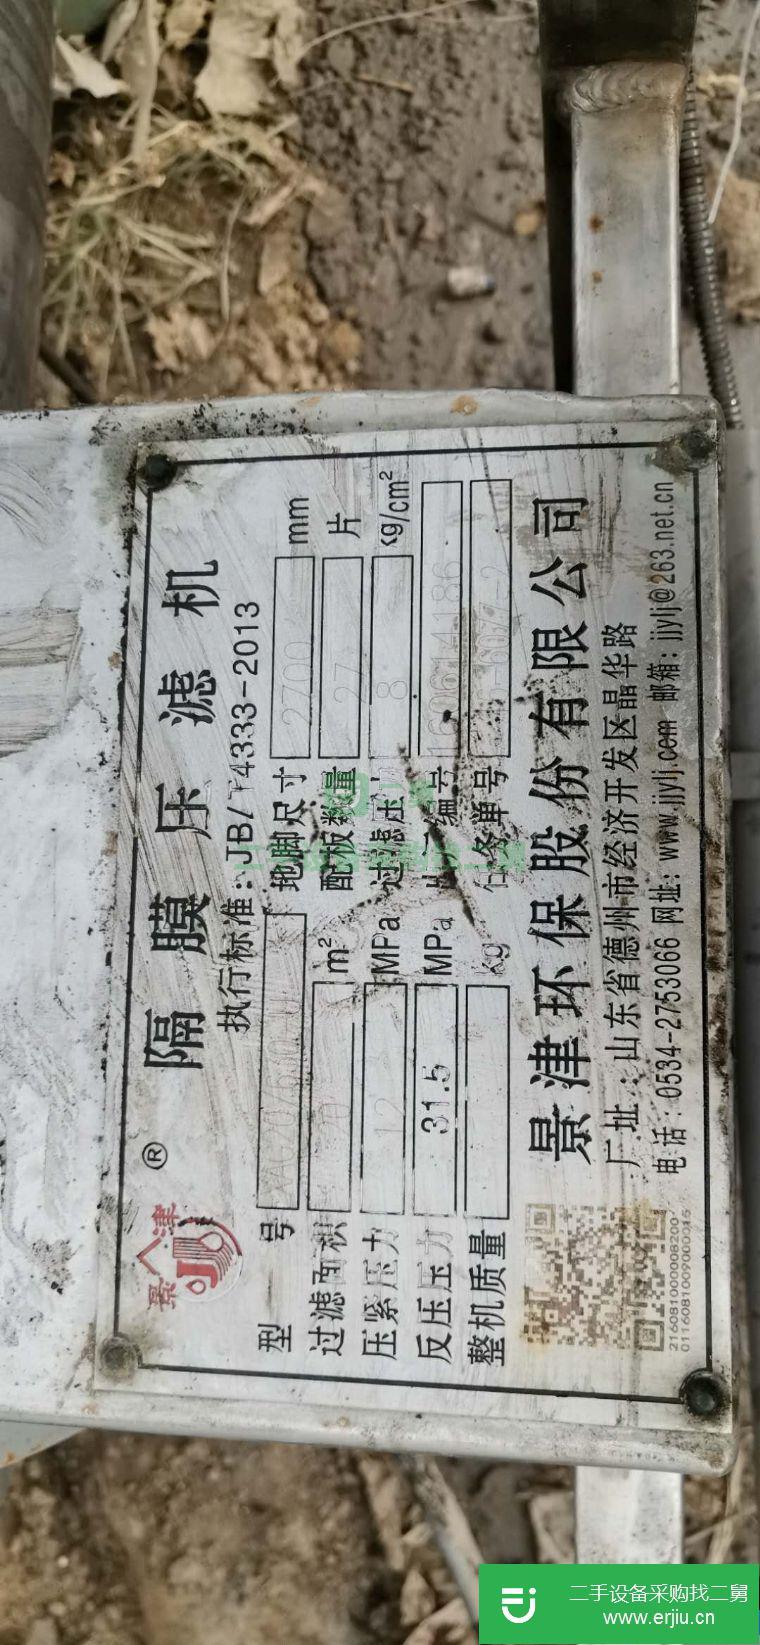 景津
®
隔膜压滤机
执行标准：JB/T4333-2013
型号
地脚尺寸 2700 mm
过滤面积 m²
配板数量 27 片
压紧压力 12 MPa
过滤压 8 kg/cm²
反压压力 31.5 MPa
编号
整机质量 kg
任务单号
景津环保股份有限公司
厂址：山东省德州市经济开发区晶华路
电话：0534-2753066 网址：www.jjylj.com 邮箱：jjylj@263.net.cn
二手设备采购找二舅
二手设备采购找二舅
www.erjiu.cn